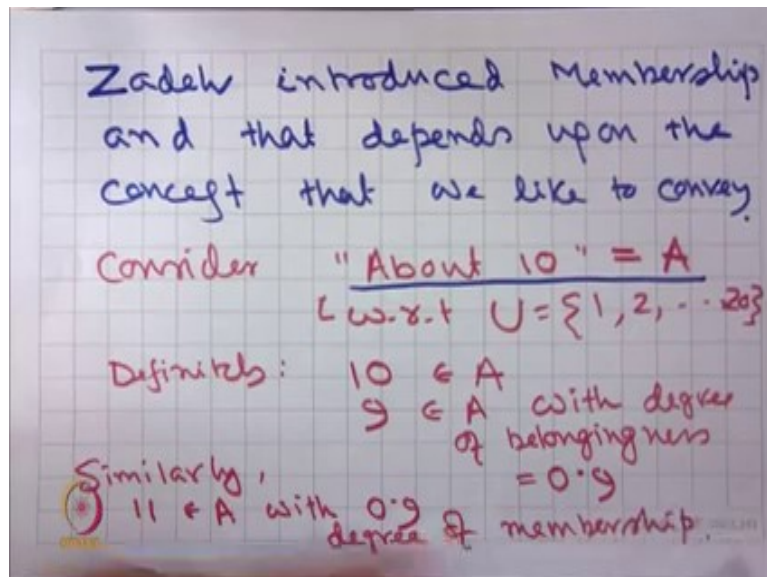 Zadeh introduced Membership
and that depends upon the
concept that we like to convey.
Consider "About 10" = A
w.r.t U = {1, 2, .. 20}
Definitely: 10 ∈ A
9 ∈ A with degree
of belongingness
= 0.9
Similarly,
11 ∈ A with 0.9
degree of membership.